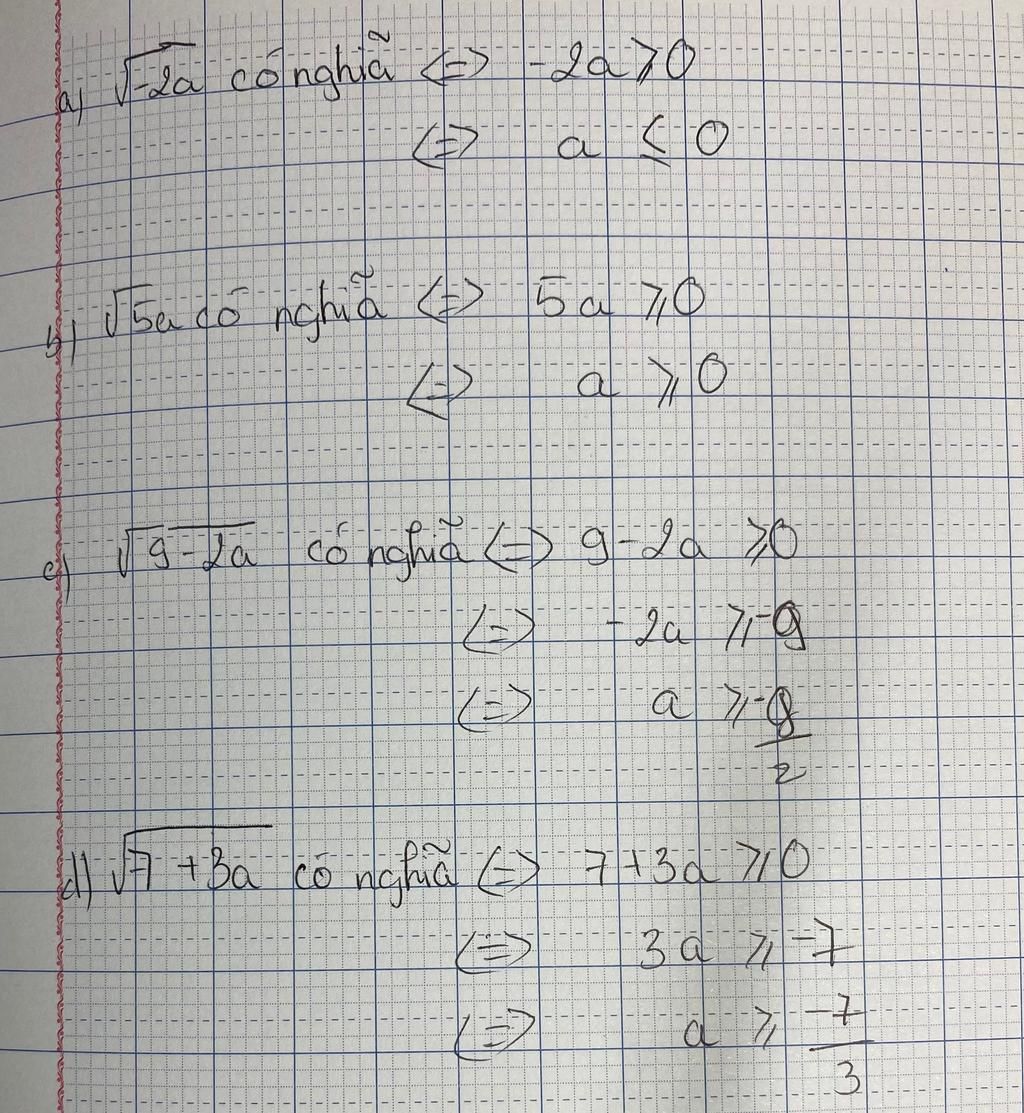 a) √-2a có nghiã <=> -2a ⩾ 0
<=> a ≤ 0
b) √5a có nghiã <=> 5a ⩾ 0
<=> a ⩾ 0
c) √9-2a có nghiã <=> 9-2a ⩾ 0
<=> -2a ⩾ -9
<=> a ⩾ -9/2
d) √7+3a có nghiã <=> 7+3a ⩾ 0
<=> 3a ⩾ -7
<=> a ⩾ -7/3